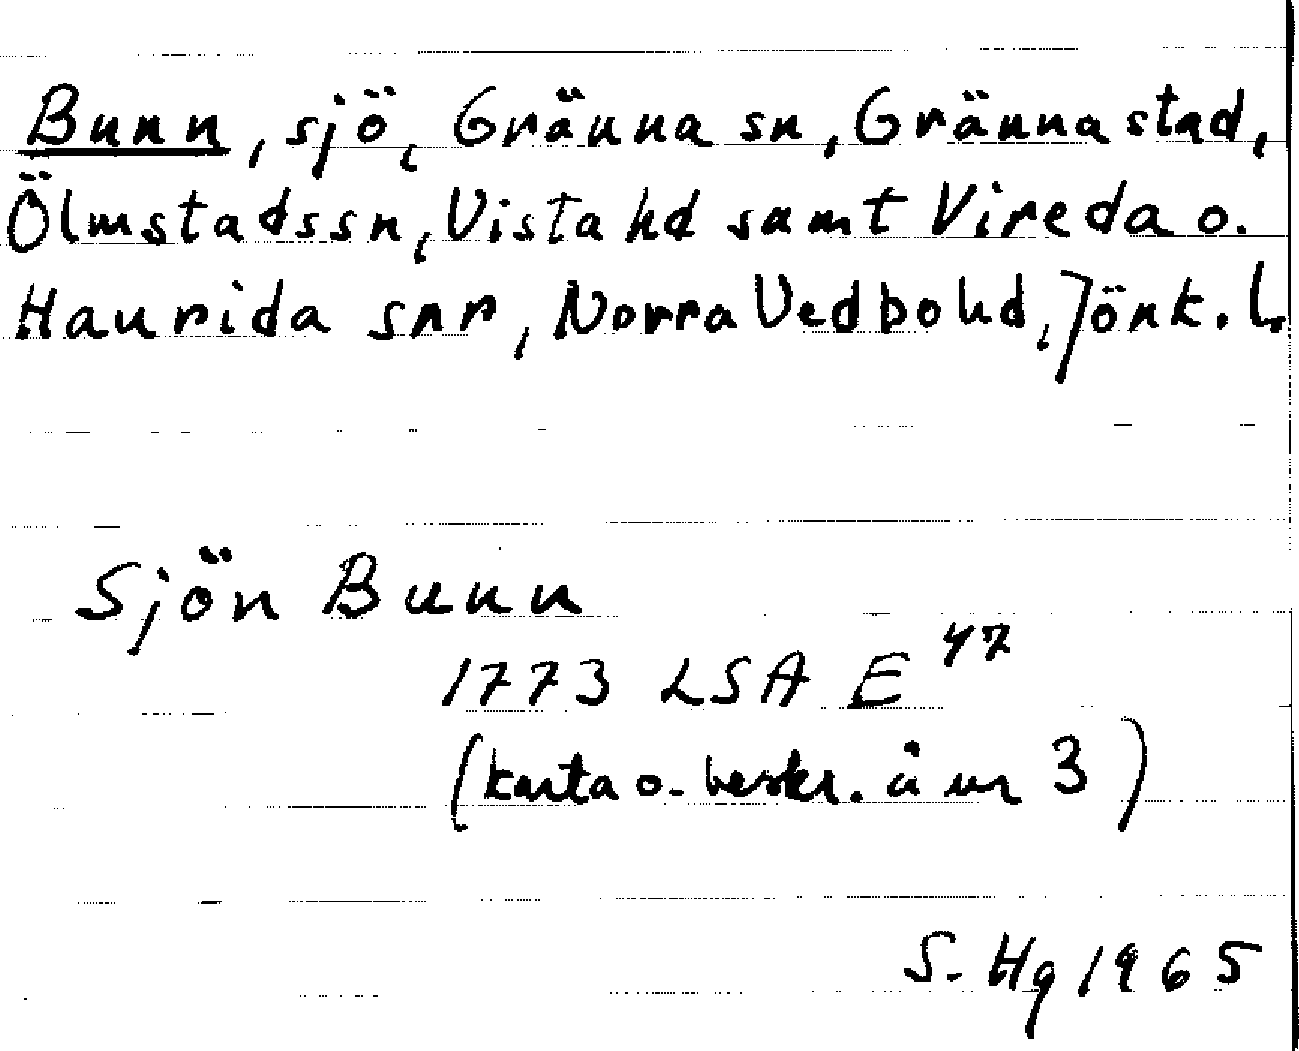 Bunn, sjö, Gränna sn, Gränna stad,
Ölmstads sn, Vista hd samt Vireda o.
Haurida snr, Norra Vedbo hd, Jönk. L.
Sjön Bunn
1773 LSA E 47
(karta o. beskr. å nr 3)
S. Hg 1965